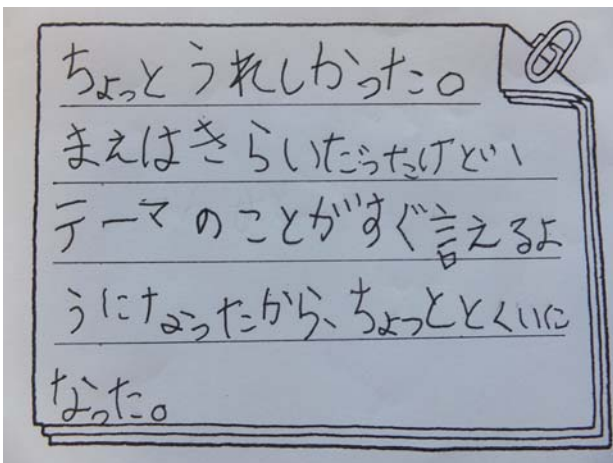 ちょっとうれしかった。
まえはきらいだったけどい
テーマのことがすぐ言えるよ
うになったから、ちょっととくいに
なった。